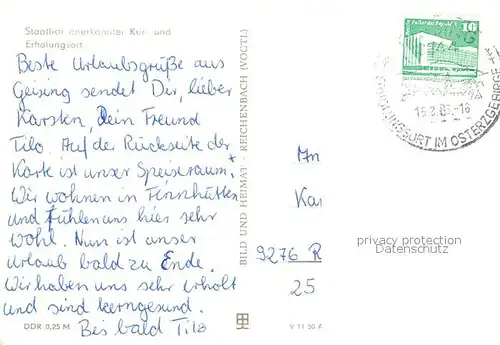 Staatlich anerkannter Kur- und
Erholungsort
Beste Urlaubsgrüße aus
Geising sendet Dir, lieber
Karsten, Dein Freund
Tilo. Auf der Rückseite der
Karte ist unser Speiseraum.
Wir wohnen in Finnhütten
und fühlen uns hier sehr
wohl. Nun ist unser
Urlaub bald zu Ende.
Wir haben uns sehr erholt
und sind kerngesund.
Bis bald Tilo
DDR 0,25 M
BILD UND HEIMAT · REICHENBACH (VOGTL)
V 11 50 A
16
IM OSTERZGEBIRGE
9276 R
25
privacy protection
Datenschutz